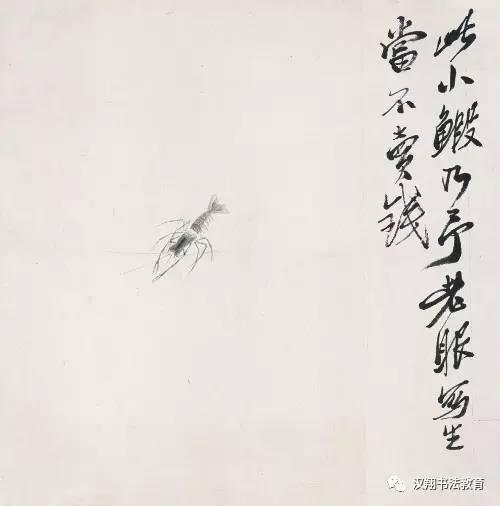 此小鰕乃予老眼寫生
當不賣錢
汉翔书法教育